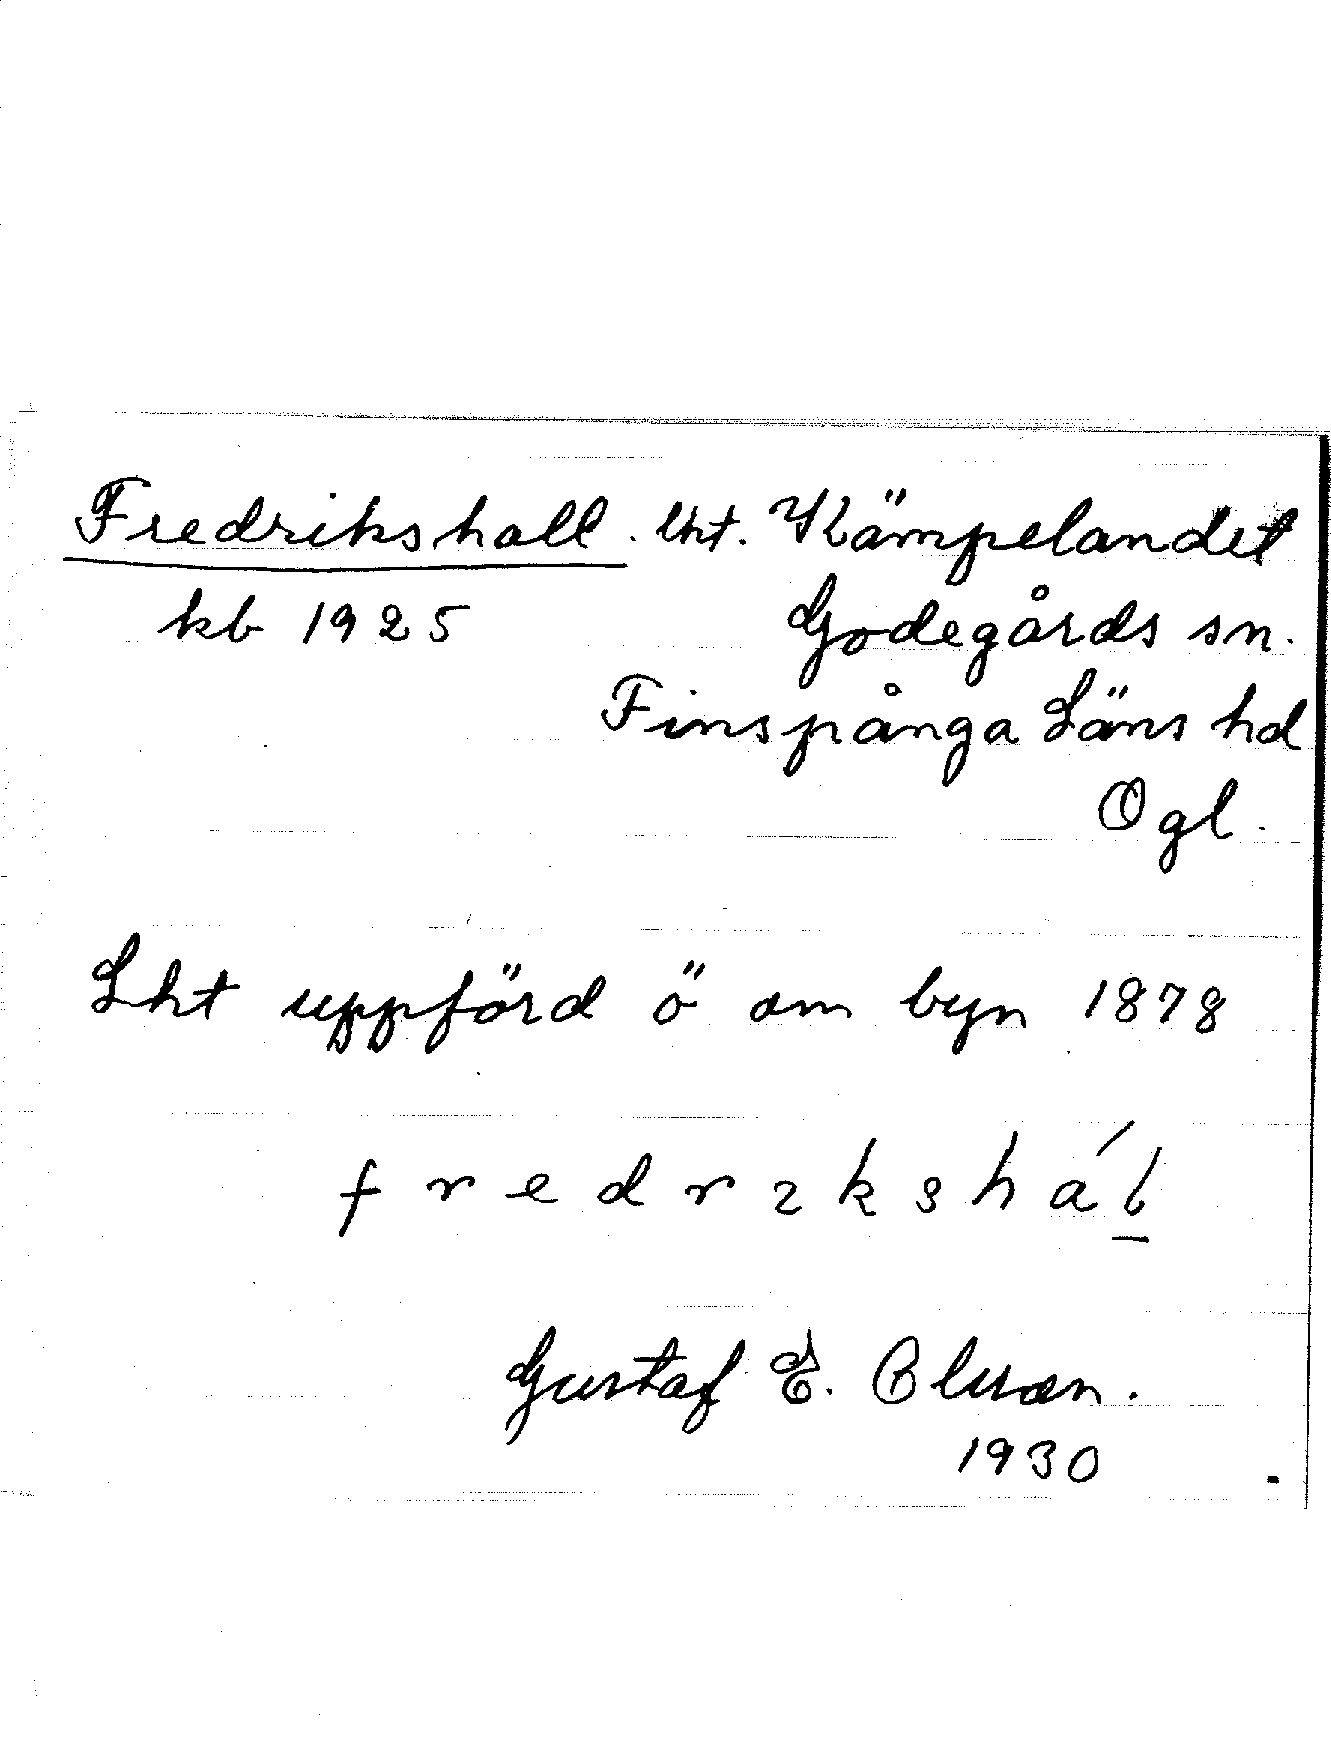 Fredrikshall. lht. Kämpelandet
kb 1925 Godegårds sn.
Finspånga Läns hd
Ögl.
Lht uppförd ö om byn 1878
fredrıkshál
Gustaf E. Olsson.
1930